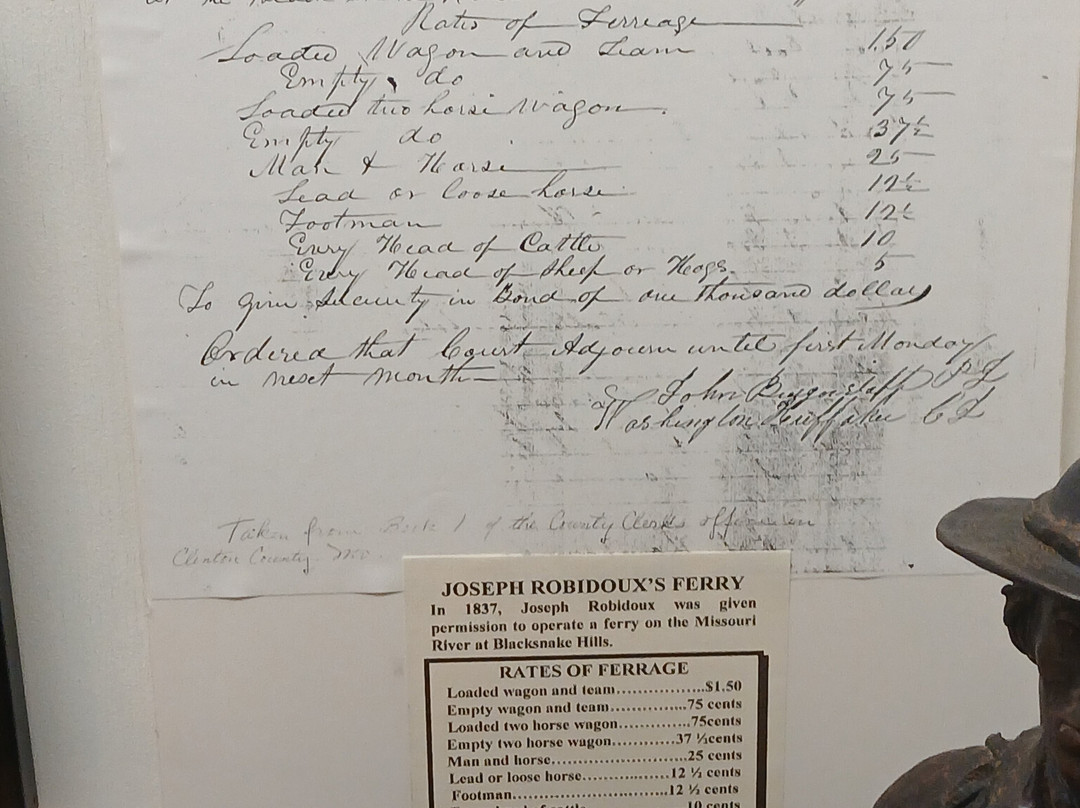 Rates of Ferreage
Loaded Wagon and Team 1.50
Empty do 75
Loaded two horse Wagon 75
Empty do 37½
Man & Horse 25
Lead or loose horse 12½
Footman 12½
Every Head of Cattle 10
Every Head of Sheep or Hogs 5
To give Security in Bond of one thousand dollars
Ordered that Court Adjourn until first Monday
in next month
John Biggerstaff PJ
Washington Huffaker CJ
Taken from Book 1 of the County Clerks office in
Clinton County Mo.
JOSEPH ROBIDOUX'S FERRY
In 1837, Joseph Robidoux was given
permission to operate a ferry on the Missouri
River at Blacksnake Hills.
RATES OF FERRAGE
Loaded wagon and team..................$1.50
Empty wagon and team...............75 cents
Loaded two horse wagon..............75cents
Empty two horse wagon............37 ½cents
Man and horse..........................25 cents
Lead or loose horse................12 ½ cents
Footman................................12 ½ cents
10 cents